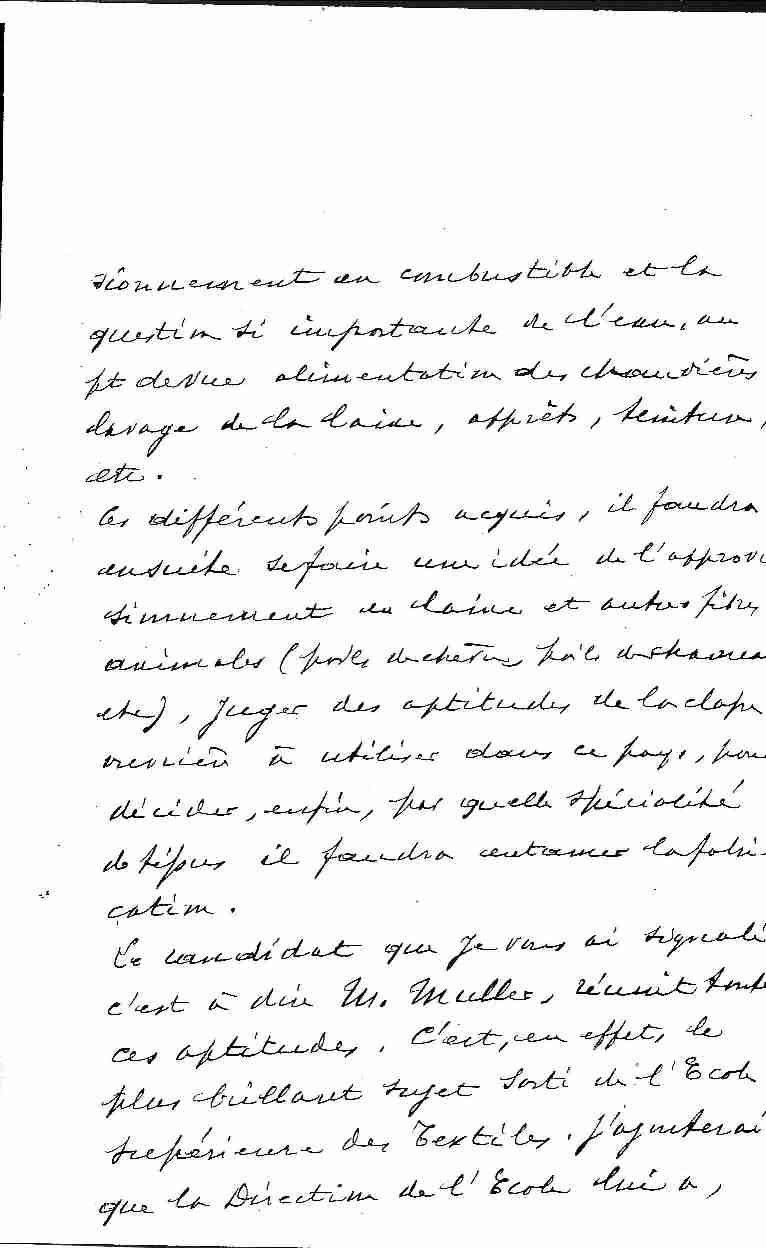 sionnement en combustible et la
question si importante de l'eau, au
pt de vue alimentation des chaudières
lavage de la laine, apprêts, teinture,
etc.
Ces différents points acquis, il faudra
ensuite se faire une idée de l'approvi
sionnement en laine et autres fibres
animales (poils de chèvre, poils de chameau
etc), juger des aptitudes de la classe
ouvrière à utiliser dans ce pays, pour
décider, enfin, par quelle spécialité
de tissus il faudra entamer la fabri-
cation.
Le candidat que je vous ai signalé
c'est à dire M. Muller, réunit toutes
ces aptitudes. C'est, en effet, le
plus brillant sujet sorti de l'Ecole
supérieure des Textiles. J'ajouterai
que la Direction de l'Ecole lui a,